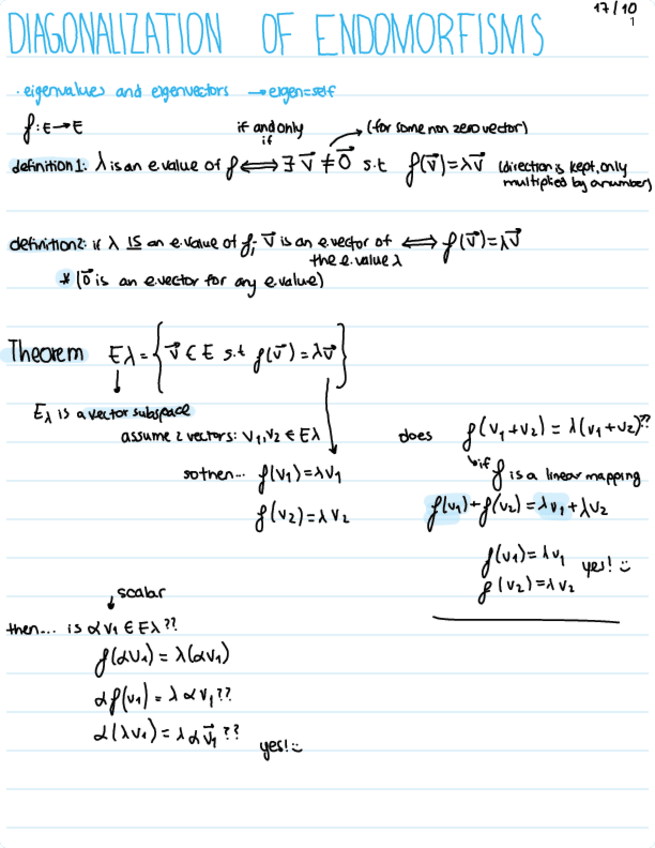 17/10
1
DIAGONALIZATION OF ENDOMORFISMS
· eigenvalues and eigenvectors → eigen=self
f: E→E
if and only if
(for some non zero vector)
definition 1: λ is an e.value of f ⟺ ∃ v⃗ ≠ 0⃗ s.t f(v⃗)=λv⃗ (direction is kept, only multiplied by a number)
definition 2: if λ IS an e.value of f; v⃗ is an e.vector of the e.value λ ⟺ f(v⃗)=λv⃗
* (0⃗ is an e.vector for any e.value)
Theorem Eλ = { v⃗ ∈ E s.t f(v⃗)=λv⃗ }
Eλ is a vector subspace
assume 2 vectors: v₁, v₂ ∈ Eλ
so then... f(v₁)=λv₁
f(v₂)=λv₂
does f(v₁+v₂) = λ(v₁+v₂)??
if f is a linear mapping
f(v₁)+f(v₂) = λv₁+λv₂
f(v₁)=λv₁
f(v₂)=λv₂ yes! :)
scalar
then... is αv₁ ∈ Eλ??
f(αv₁) = λ(αv₁)
αf(v₁) = λαv₁??
α(λv₁) = λαv⃗₁??
yes! :)